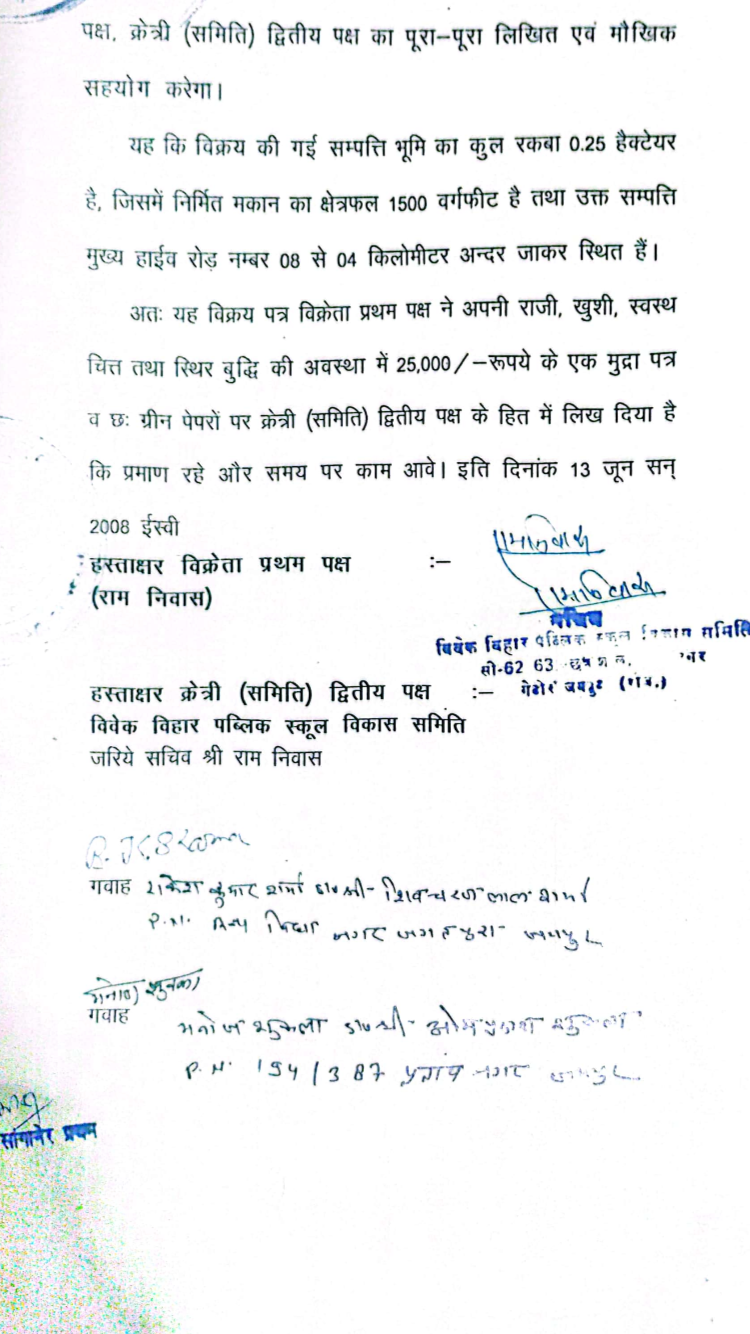 पक्ष, क्रेत्री (समिति) द्वितीय पक्ष का पूरा–पूरा लिखित एवं मौखिक
सहयोग करेगा।
यह कि विक्रय की गई सम्पत्ति भूमि का कुल रकबा 0.25 हैक्टेयर
है, जिसमें निर्मित मकान का क्षेत्रफल 1500 वर्गफीट है तथा उक्त सम्पत्ति
मुख्य हाईव रोड़ नम्बर 08 से 04 किलोमीटर अन्दर जाकर स्थित हैं।
अतः यह विक्रय पत्र विक्रेता प्रथम पक्ष ने अपनी राजी, खुशी, स्वस्थ
चित्त तथा स्थिर बुद्धि की अवस्था में 25,000/–रूपये के एक मुद्रा पत्र
व छः ग्रीन पेपरों पर क्रेत्री (समिति) द्वितीय पक्ष के हित में लिख दिया है
कि प्रमाण रहे और समय पर काम आवे। इति दिनांक 13 जून सन्
2008 ईस्वी
रामनिवास
हस्ताक्षर विक्रेता प्रथम पक्ष :–
रामनिवास
(राम निवास)
सचिव
विवेक विहार पब्लिक स्कूल विकास समिति
सी-62 63
हस्ताक्षर क्रेत्री (समिति) द्वितीय पक्ष :–
जयपुर (राज.)
विवेक विहार पब्लिक स्कूल विकास समिति
जरिये सचिव श्री राम निवास
R. K. Sharma
गवाह राकेश कुमार शर्मा S/o श्री शिवचरण लाल शर्मा
P.N. नगर जगतपुरा जयपुर
मनोज शुक्ला
गवाह
मनोज शुक्ला S/o श्री ओमप्रकाश शुक्ला
P.N. 194/387 प्रताप नगर जयपुर
सांगानेर प्रथम